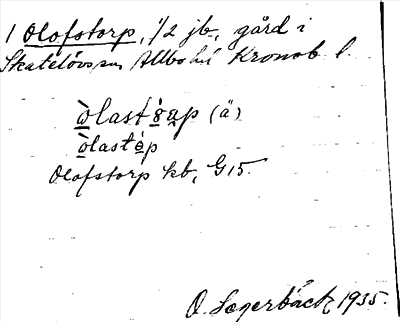 1 Olofstorp, 1/2 jb, gård i
Skatelövs sn Allbo hd Kronob. l.
òlast
òlast
Olofstorp kb, G15.
O. Segerbäck 1935.